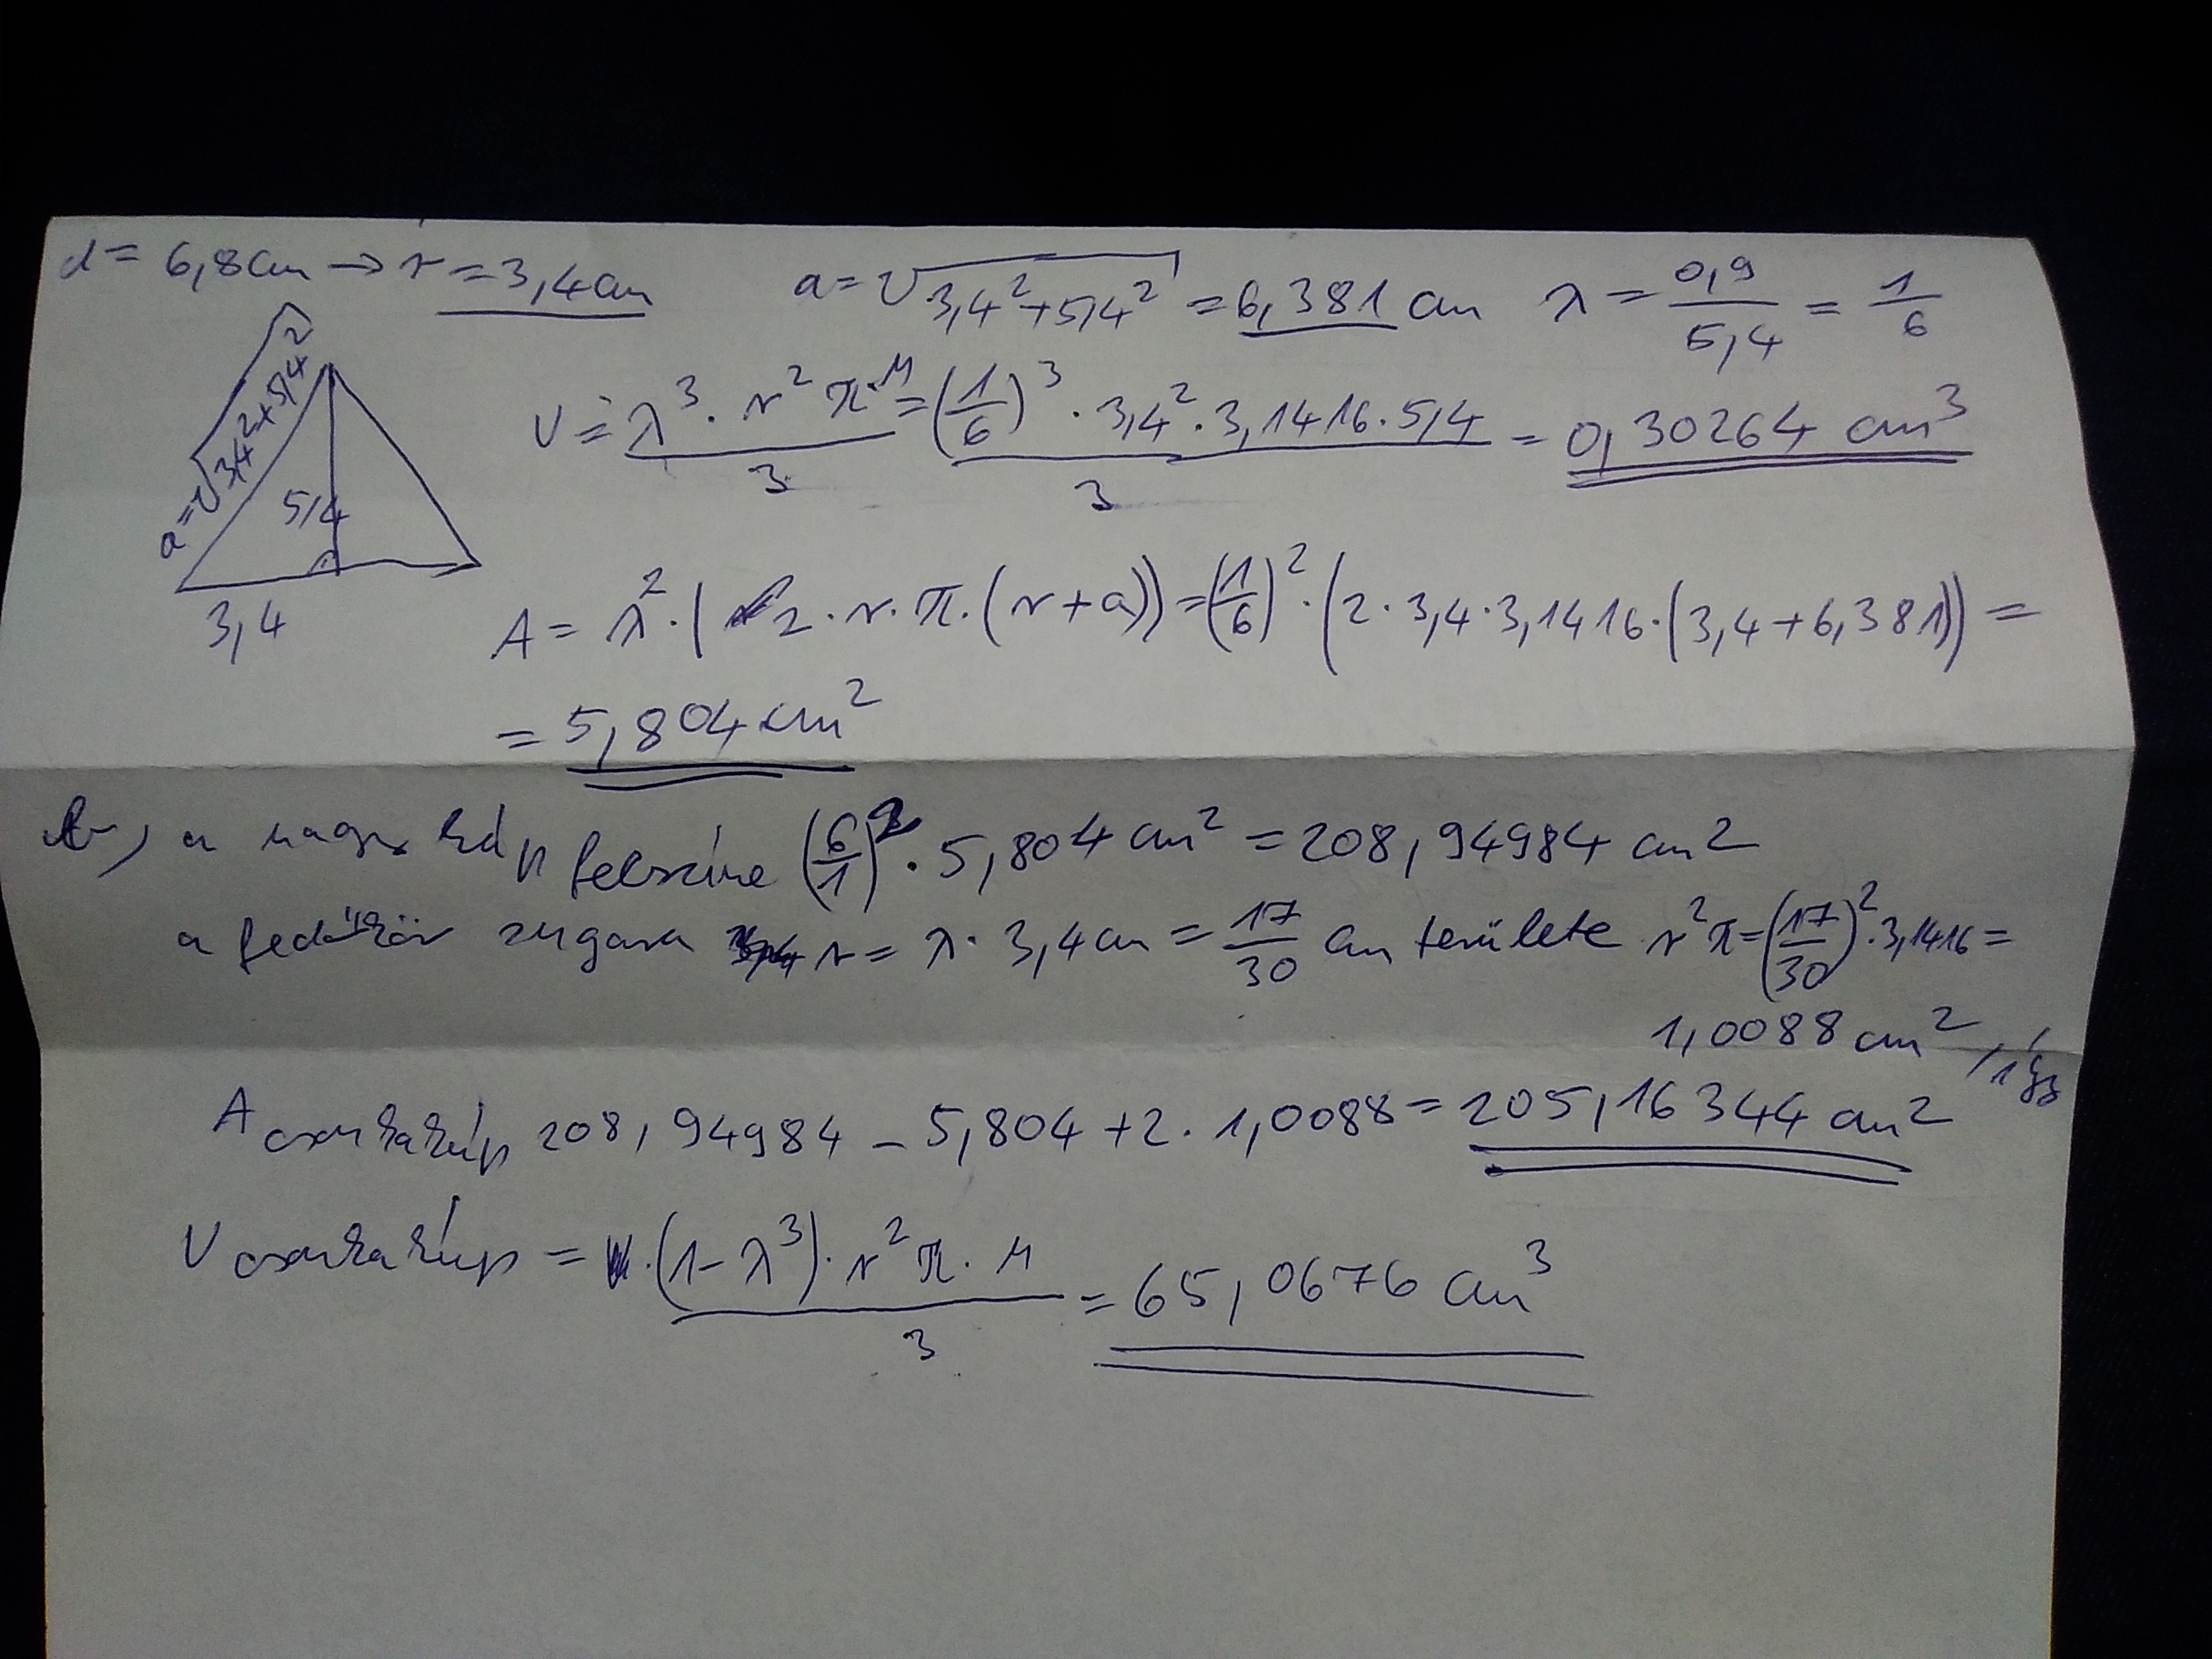 d = 6,8cm → r = 3,4cm a = √3,4²+5,4² = 6,381 cm λ = 0,9/5,4 = 1/6
a = √3,4²+5,4²
5,4
3,4
V = λ³ · r² π · M / 3 = (1/6)³ · 3,4² · 3,1416 · 5,4 / 3 = 0,30264 cm³
A = λ² · ( 2 · r · π · (r + a)) = (1/6)² · (2 · 3,4 · 3,1416 · (3,4 + 6,381)) =
= 5,804 cm²
b, a nagy kúp felszíne (6/1)² · 5,804 cm² = 208,94984 cm²
a fedőkör sugara r = λ · 3,4 cm = 17/30 cm területe r²π = (17/30)² · 3,1416 =
1,0088 cm²
A csonkakúp 208,94984 – 5,804 + 2 · 1,0088 = 205,16344 cm²
V csonkakúp = (1 – λ³) · r² π · M / 3 = 65,0676 cm³